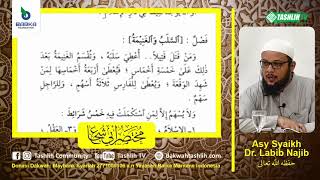 BABKA
TASHLIH
فَصْلٌ : [السَّلَبُ وَالغَنِيْمَةُ]
وَمَنْ قَتَلَ قَتِيلاً .. أُعْطِيَ سَلَبَهُ ، وَتُقْسَمُ الغَنِيمَةُ بَعْدَ
ذَلِكَ عَلَى خَمْسَةِ أَخْمَاسٍ ؛ فَيُعْطَى أَرْبَعَةُ أَخْمَاسِهَا لِمَنْ
شَهِدَ الوَقْعَةَ ، وَيُعْطَى لِلْفَارِسِ ثَلاثَةُ أَسْهُمٍ ، وَلِلرَّاجِلِ
سَهْمٌ .
وَلا يُسْهَمُ إِلَّا لِمَنِ اسْتَكْمَلَتْ فِيهِ خَمْسُ شَرَائِطَ :
Asy Syaikh
Dr. Labib Najib
حفظه الله تعالى
Tashlih Community
Tashlih TV
Dakwahtashlih.com